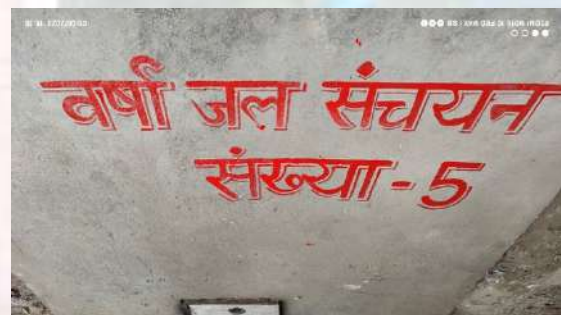 वर्षा जल संचयन
संख्या - 5